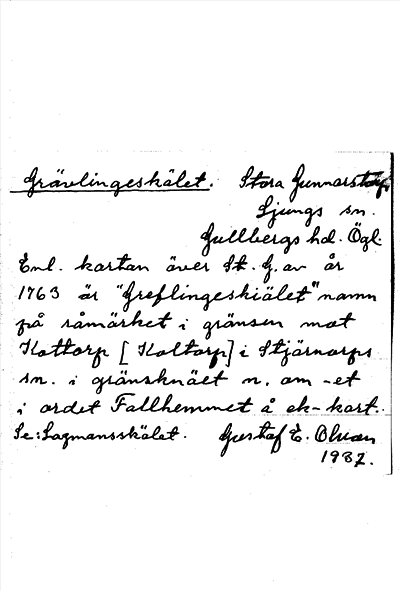 Grävlingeskälet. Stora Gunnarstorp,
Ljungs sn.
Gullbergs hd. Ögl.
Enl. kartan över St. G. av år
1763 är "Greflingeskiälet" namn
på råmärket i gränsen mot
Kottorp [Koltorp] i Stjärnorps
sn. i gränsknäet n. om -et
i ordet Fallhemmet å ek-kart.
Se: Lagmansskälet. Gustaf E. Olsson
1937.